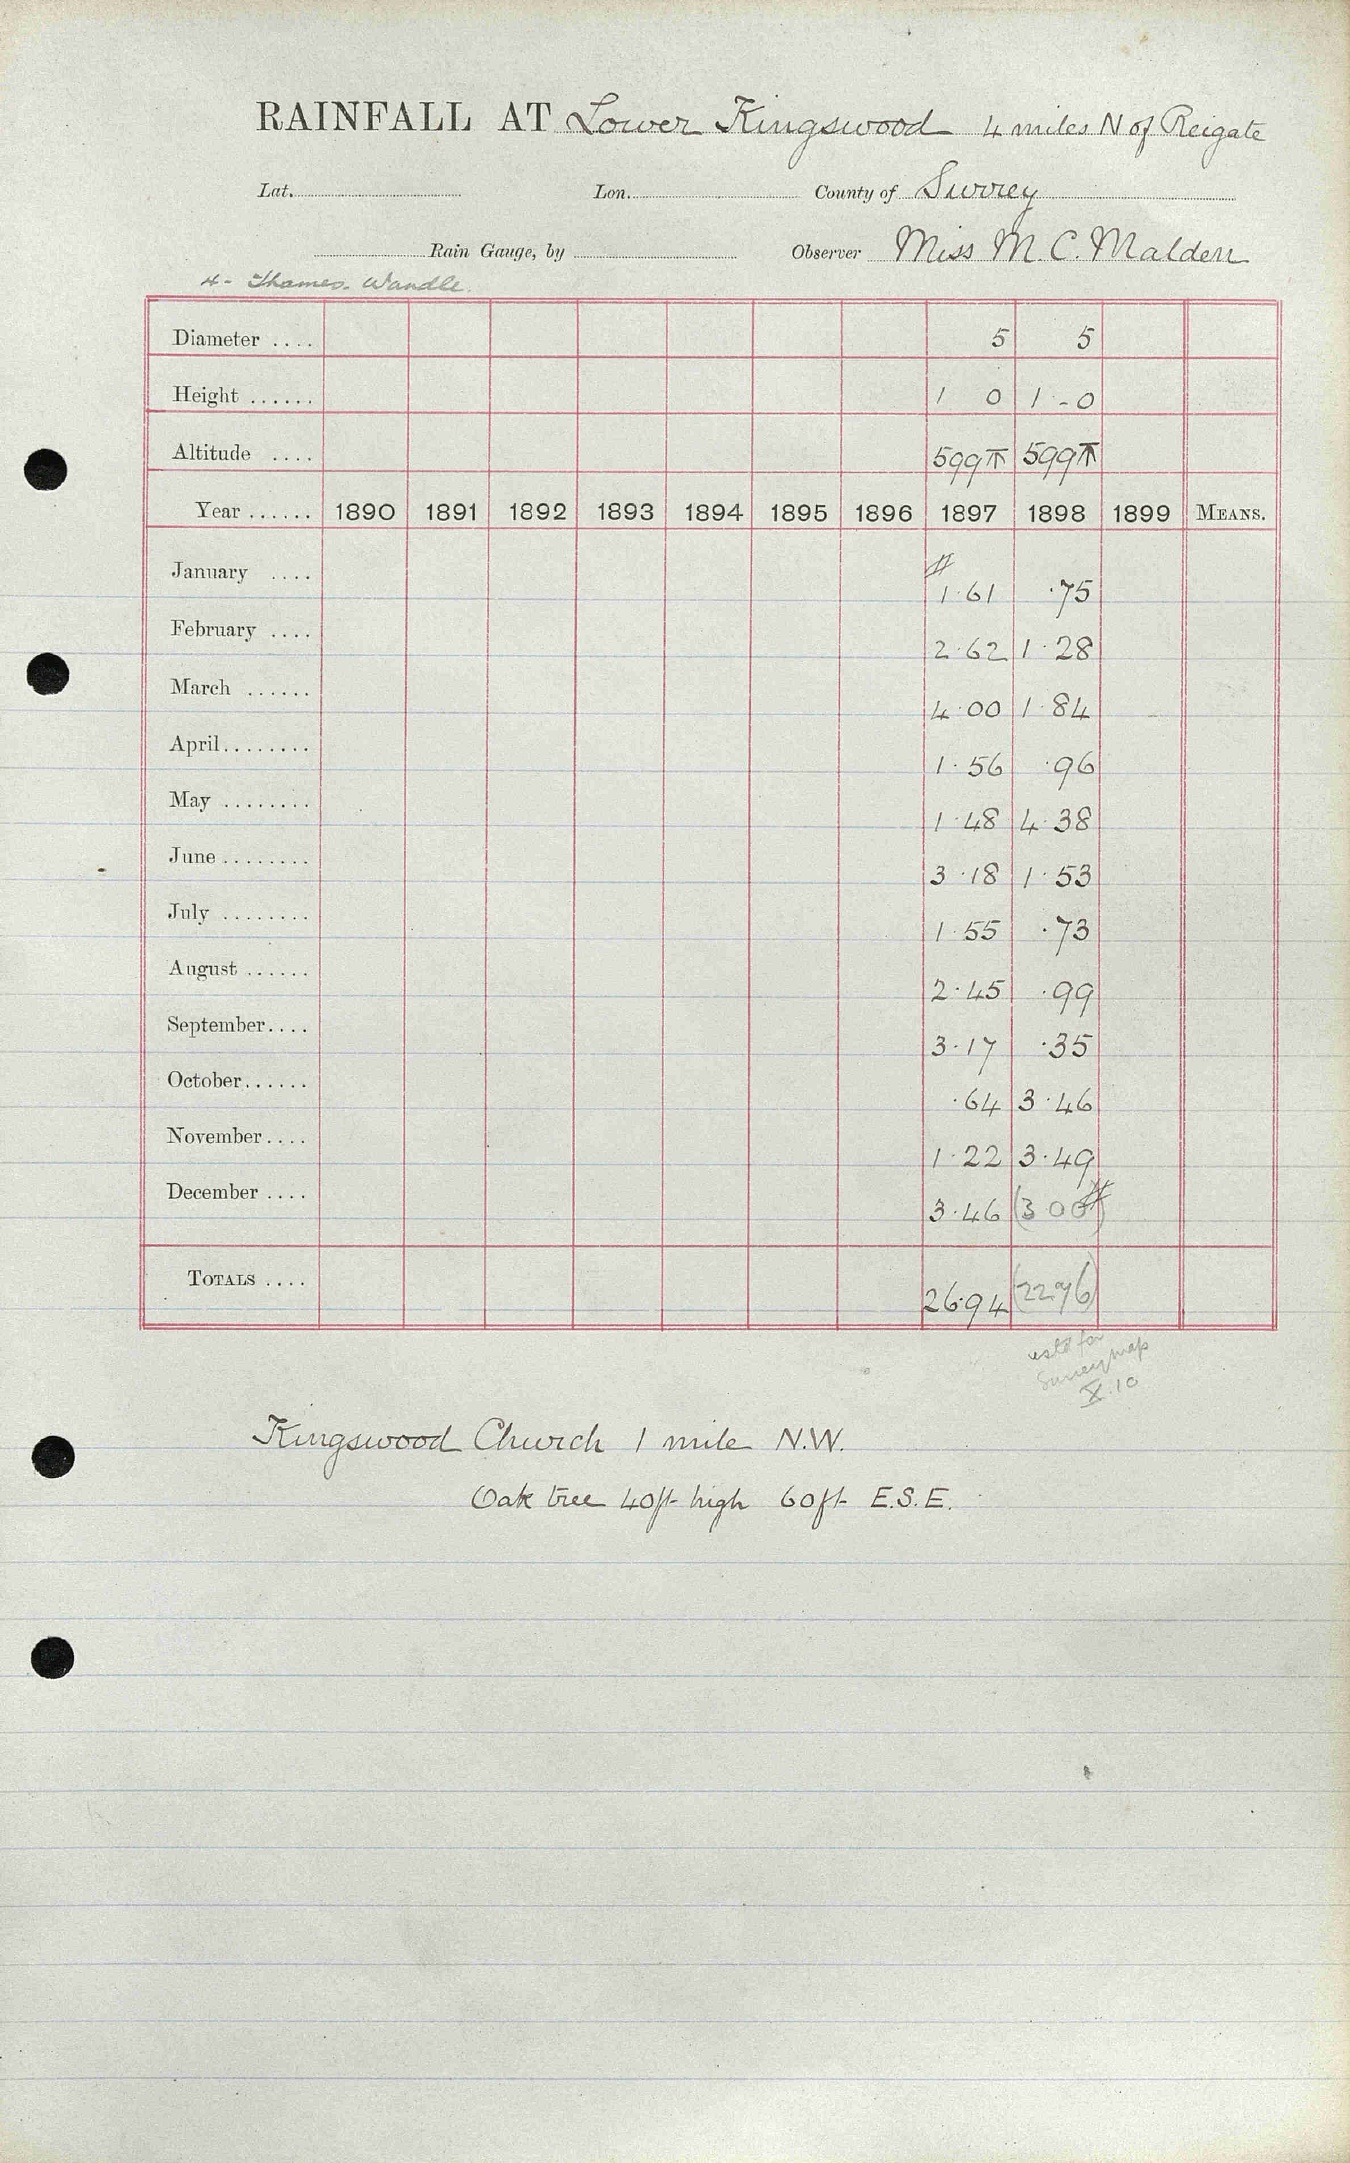 RAINFALL AT Lower Kingswood 4 miles N of Reigate
Lat. Lon. County of Surrey
Rain Gauge, by Observer Miss M. C. Malden
4 - Thames. Wandle.
Diameter .... 5 5
Height ...... 1 0 1 - 0
Altitude .... 599 599
Year ...... 1890 1891 1892 1893 1894 1895 1896 1897 1898 1899 MEANS.
January .... # 1.61 .75
February .... 2.62 1.28
March ...... 4.00 1.84
April........ 1.56 .96
May ........ 1.48 4.38
June ........ 3.18 1.53
July ........ 1.55 .73
August ...... 2.45 .99
September.... 3.17 .35
October...... .64 3.46
November.... 1.22 3.49
December .... 3.46 (3 00) #
TOTALS .... 26.94 (22.76)
estd for
Surrey map
X.10
Kingswood Church 1 mile N.W.
Oak tree 40ft high 60ft E.S.E.